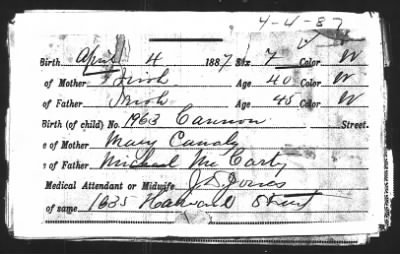 4-4-87
Birth April 4 1887 Sex F Color W
of Mother Irish Age 40 Color W
of Father Irish Age 45 Color W
Birth (of child) No. 1963 Cannon Street.
e of Mother Mary Canaly
e of Father Michael McCarty
Medical Attendant or Midwife J. D. Jones
of same 1635 Harvard Street